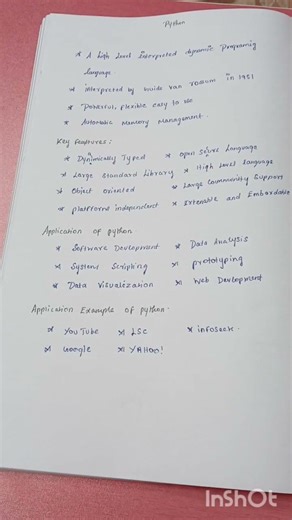 Python
* A high Level Interpreted dynamic Programing
language.
* interpreted by Guido van rossum in 1991
* Powerful, flexible easy to use
* Automatic Memory Management.
Key Features:
* Dynimically Typed * open soure Language
* Large Standard Library * High Level Language
* Object oriented * Large Community Support
* Platform independent * Extenable and Embardable
Application of python:
* Software Development * Data Analysis
* System Scripting * prototyping
* Data Visualization * Web Development
Application Example of python:
* YouTube * LSC * infoseek.
* Google * YAHOO!
InShOt